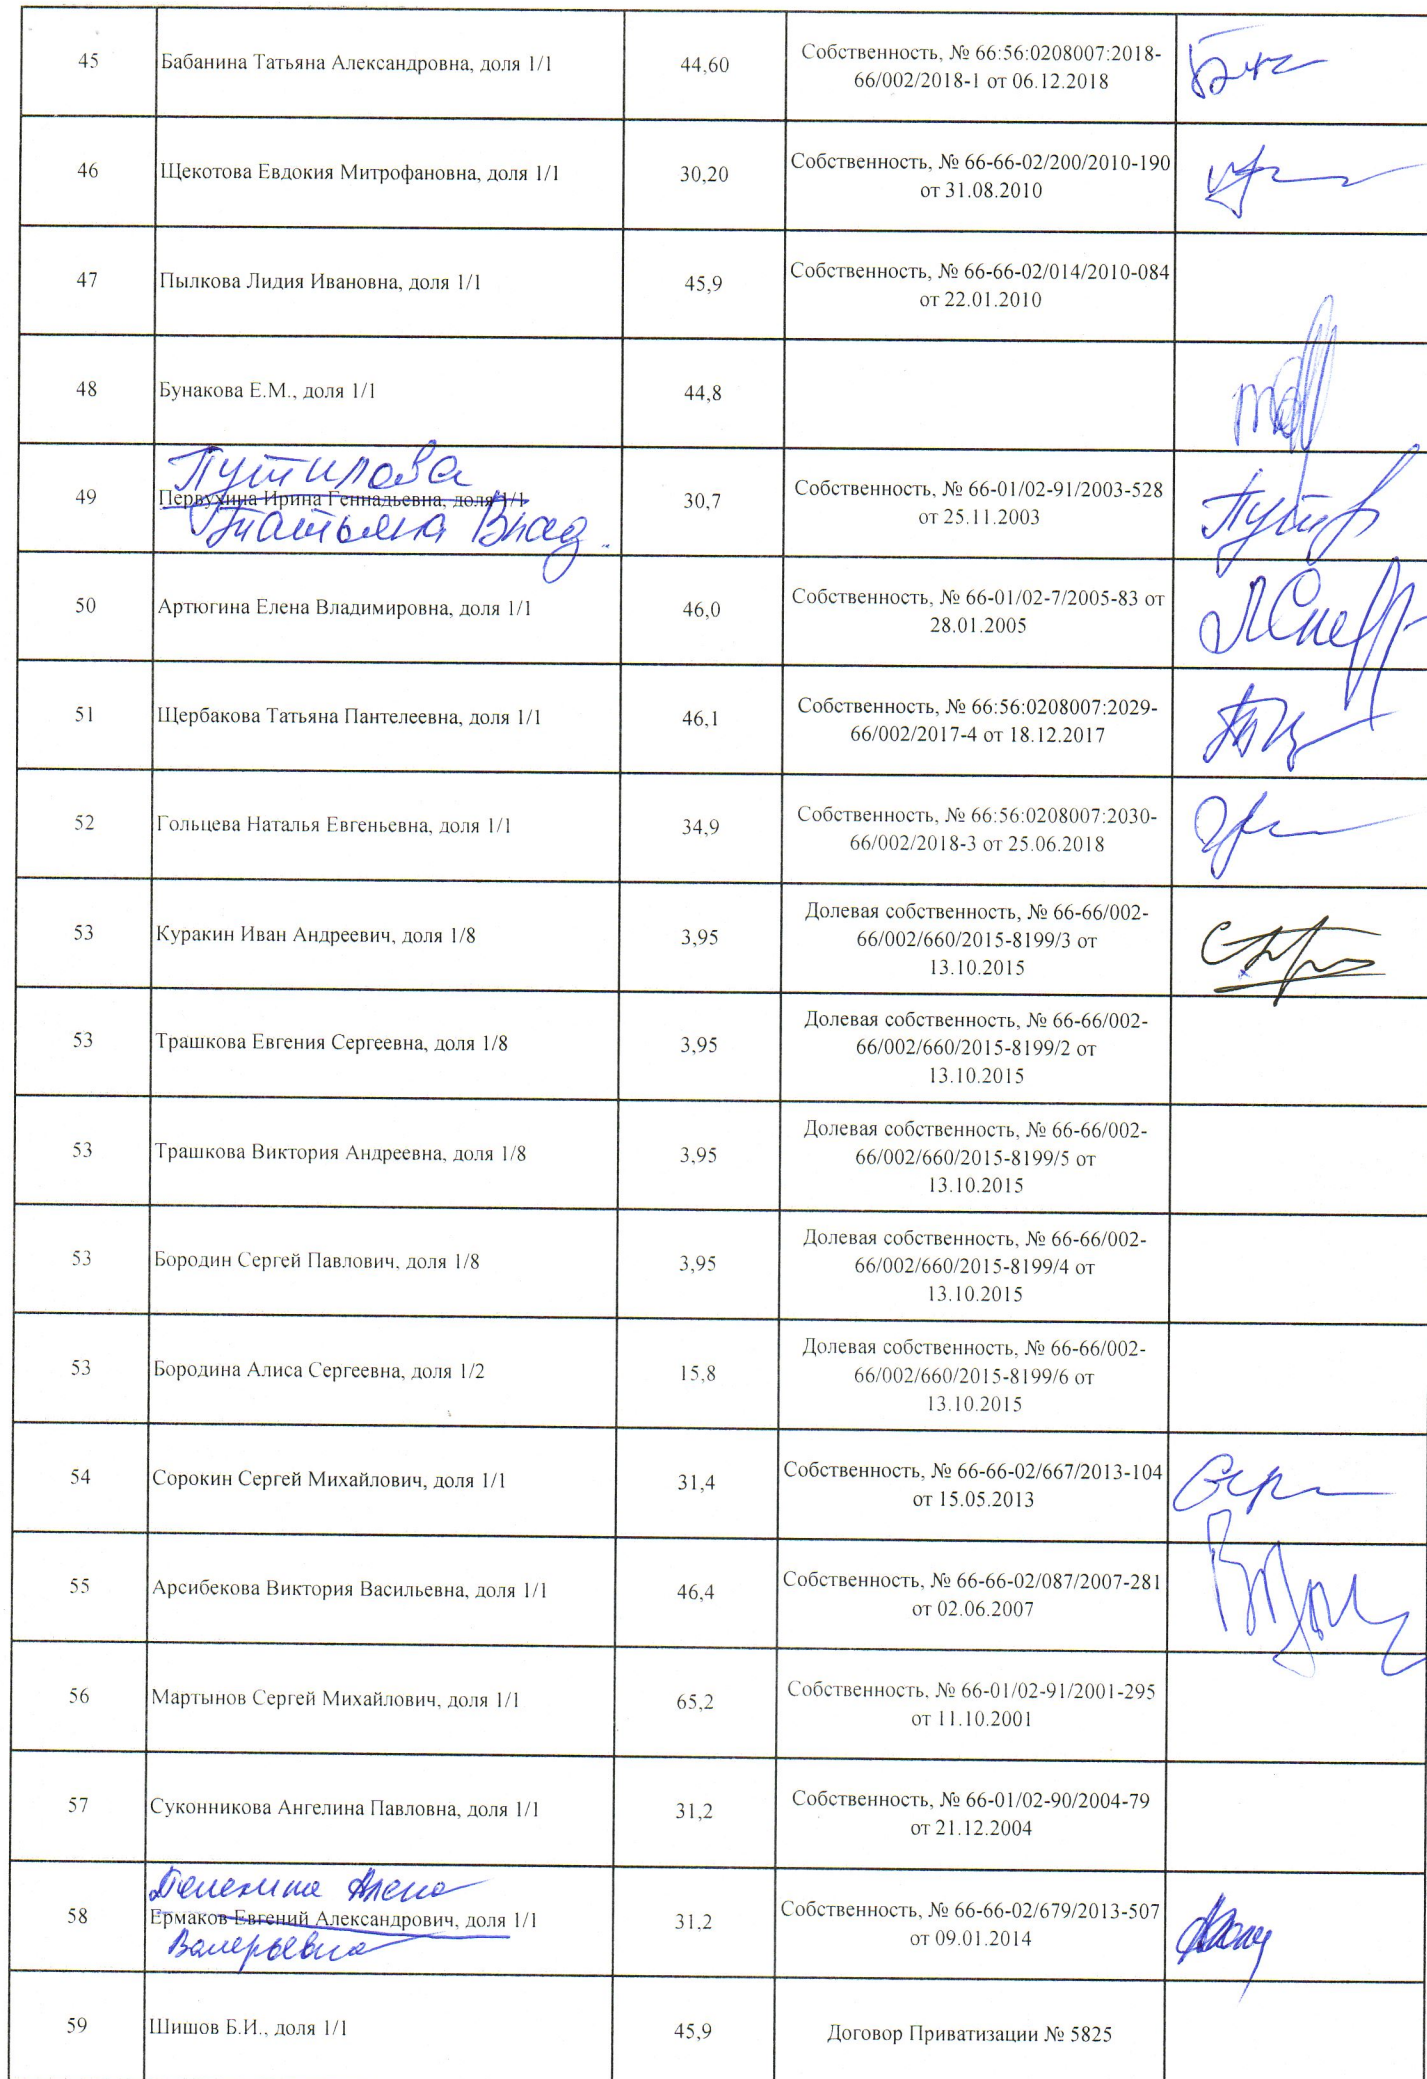 45
Бабанина Татьяна Александровна, доля 1/1
44,60
Собственность, № 66:56:0208007:2018-
66/002/2018-1 от 06.12.2018
46
Щекотова Евдокия Митрофановна, доля 1/1
30,20
Собственность, № 66-66-02/200/2010-190
от 31.08.2010
47
Пылкова Лидия Ивановна, доля 1/1
45,9
Собственность, № 66-66-02/014/2010-084
от 22.01.2010
48
Бунакова Е.М., доля 1/1
44,8
49
Путилова
Первухина Ирина Геннадьевна, доля 1/1
Татьяна Влад.
30,7
Собственность, № 66-01/02-91/2003-528
от 25.11.2003
50
Артюгина Елена Владимировна, доля 1/1
46,0
Собственность, № 66-01/02-7/2005-83 от
28.01.2005
51
Щербакова Татьяна Пантелеевна, доля 1/1
46,1
Собственность, № 66:56:0208007:2029-
66/002/2017-4 от 18.12.2017
52
Гольцева Наталья Евгеньевна, доля 1/1
34,9
Собственность, № 66:56:0208007:2030-
66/002/2018-3 от 25.06.2018
53
Куракин Иван Андреевич, доля 1/8
3,95
Долевая собственность, № 66-66/002-
66/002/660/2015-8199/3 от
13.10.2015
53
Трашкова Евгения Сергеевна, доля 1/8
3,95
Долевая собственность, № 66-66/002-
66/002/660/2015-8199/2 от
13.10.2015
53
Трашкова Виктория Андреевна, доля 1/8
3,95
Долевая собственность, № 66-66/002-
66/002/660/2015-8199/5 от
13.10.2015
53
Бородин Сергей Павлович, доля 1/8
3,95
Долевая собственность, № 66-66/002-
66/002/660/2015-8199/4 от
13.10.2015
53
Бородина Алиса Сергеевна, доля 1/2
15,8
Долевая собственность, № 66-66/002-
66/002/660/2015-8199/6 от
13.10.2015
54
Сорокин Сергей Михайлович, доля 1/1
31,4
Собственность, № 66-66-02/667/2013-104
от 15.05.2013
55
Арсибекова Виктория Васильевна, доля 1/1
46,4
Собственность, № 66-66-02/087/2007-281
от 02.06.2007
56
Мартынов Сергей Михайлович, доля 1/1
65,2
Собственность, № 66-01/02-91/2001-295
от 11.10.2001
57
Суконникова Ангелина Павловна, доля 1/1
31,2
Собственность, № 66-01/02-90/2004-79
от 21.12.2004
58
Алена
Ермаков Евгений Александрович, доля 1/1
Валерьевна
31,2
Собственность, № 66-66-02/679/2013-507
от 09.01.2014
59
Шишов Б.И., доля 1/1
45,9
Договор Приватизации № 5825